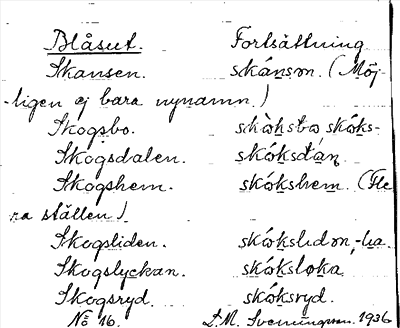 Blåsut. Fortsättning
Skansen. skánsən. (Möj-
ligen ej bara nynamn.)
Skogsbo. skòksbo skóks-
Skogsdalen. skóksdán
Skogshem. skókshem. (Fle
ra ställen)
Skogsliden. skókslidən, -lia.
Skogslyckan. skóksløka
Skogsryd. skóksryd.
No 16. D.M. Svenningson. 1936